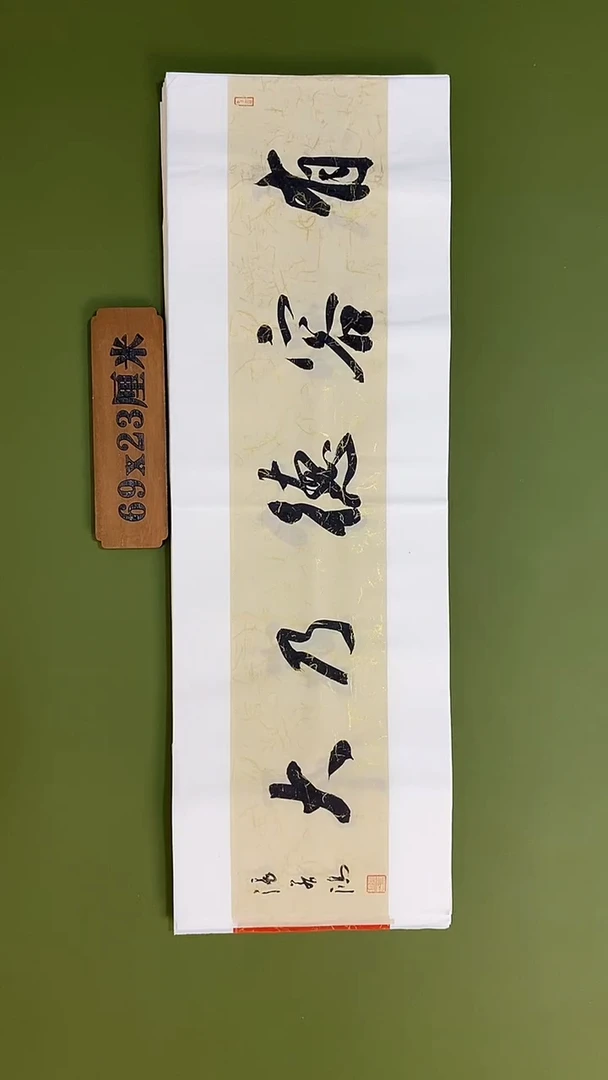 有容德乃大
69x23厘米